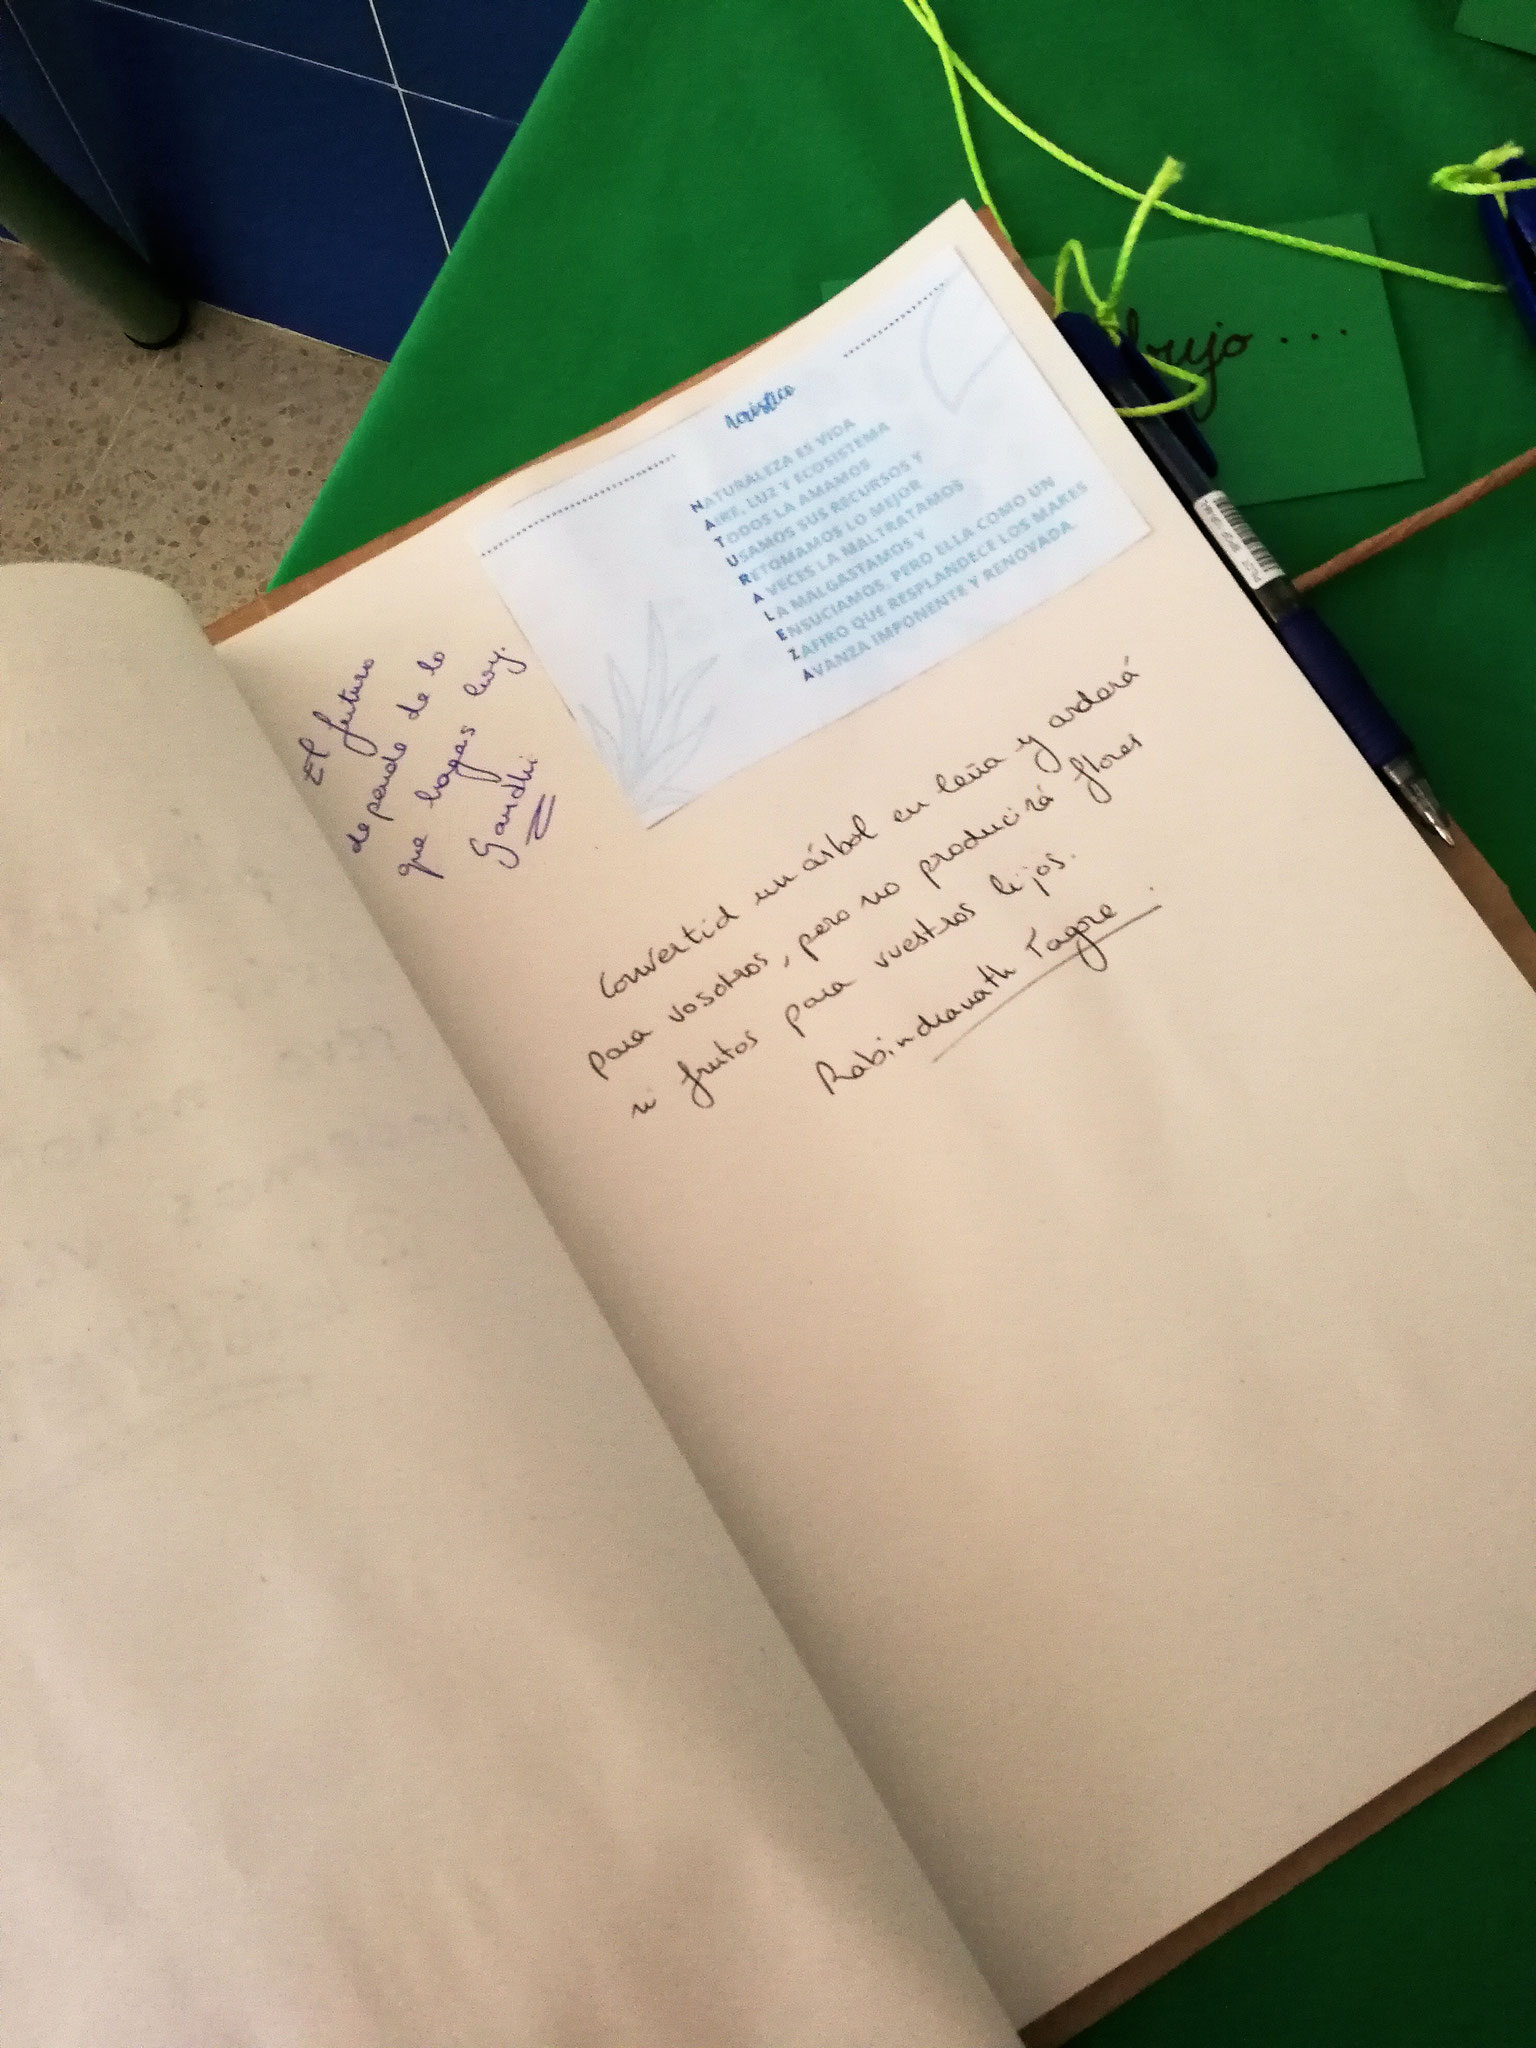 Acróstico
NATURALEZA ES VIDA
AIRE, LUZ Y ECOSISTEMA
TODOS LA AMAMOS
USAMOS SUS RECURSOS Y
RETOMAMOS LO MEJOR
A VECES LA MALTRATAMOS
LA MALGASTAMOS Y
ENSUCIAMOS, PERO ELLA COMO UN
ZAFIRO QUE RESPLANDECE LOS MAKES
AVANZA IMPONENTE Y RENOVADA
El futuro
depende de lo
que hagas hoy.
Gandhi
Convertid un árbol en leña y arderá
para vosotros, pero no producirá flores
ni frutos para vuestros hijos.
Rabindranath Tagore.